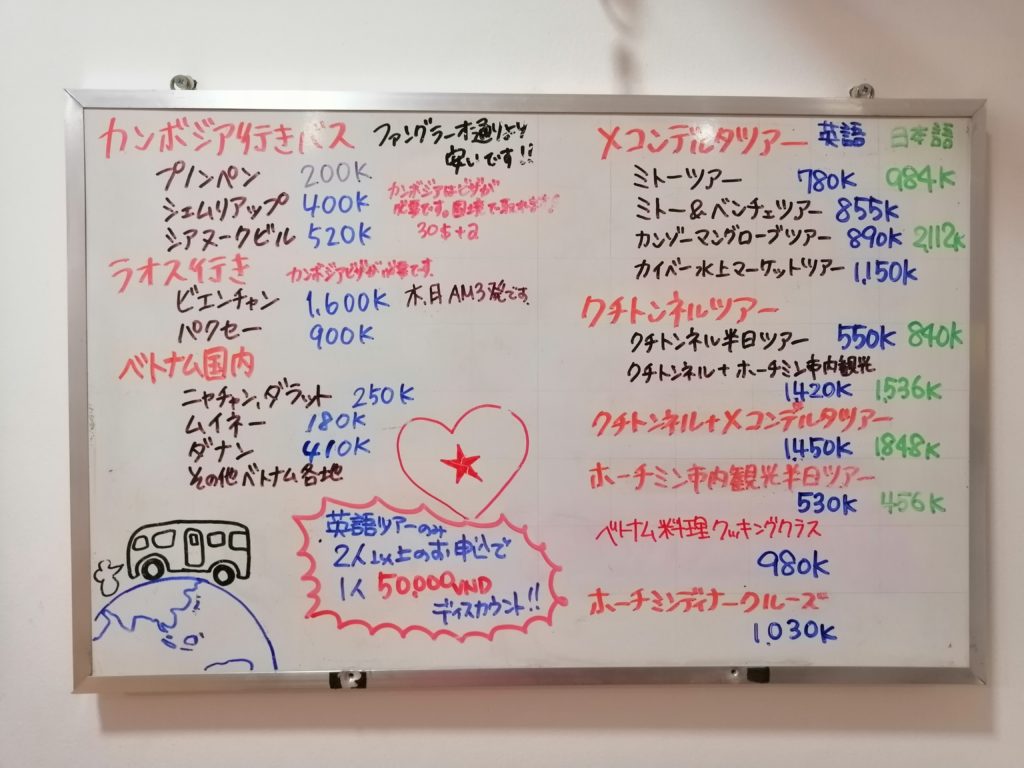 カンボジア行きバス
ファングラーオ通りより
安いです!!
プノンペン 200K
シェムリアップ 400K
シアヌークビル 520K
カンボジアはビザが
必要です。国境で取れます!
30$+2
ラオス行き カンボジアビザが必要です。
ビエンチャン 1,600K 木、日 AM3発です。
パクセー 900K
ベトナム国内
ニャチャン、ダラット 250K
ムイネー 180K
ダナン 410K
その他ベトナム各地
英語ツアーのみ
2人以上のお申込で
1人 50,000VND
ディスカウント!!
メコンデルタツアー 英語 日本語
ミトーツアー 780K 984K
ミトー&ベンチェツアー 855K
カンゾーマングローブツアー 890K 2,112K
カイバー水上マーケットツアー 1,150K
クチトンネルツアー
クチトンネル半日ツアー 550K 840K
クチトンネル+ホーチミン市内観光
1,420K 1,536K
クチトンネル+メコンデルタツアー
1,450K 1,848K
ホーチミン市内観光半日ツアー
530K 456K
ベトナム料理クッキングクラス
980K
ホーチミンディナークルーズ
1,030K